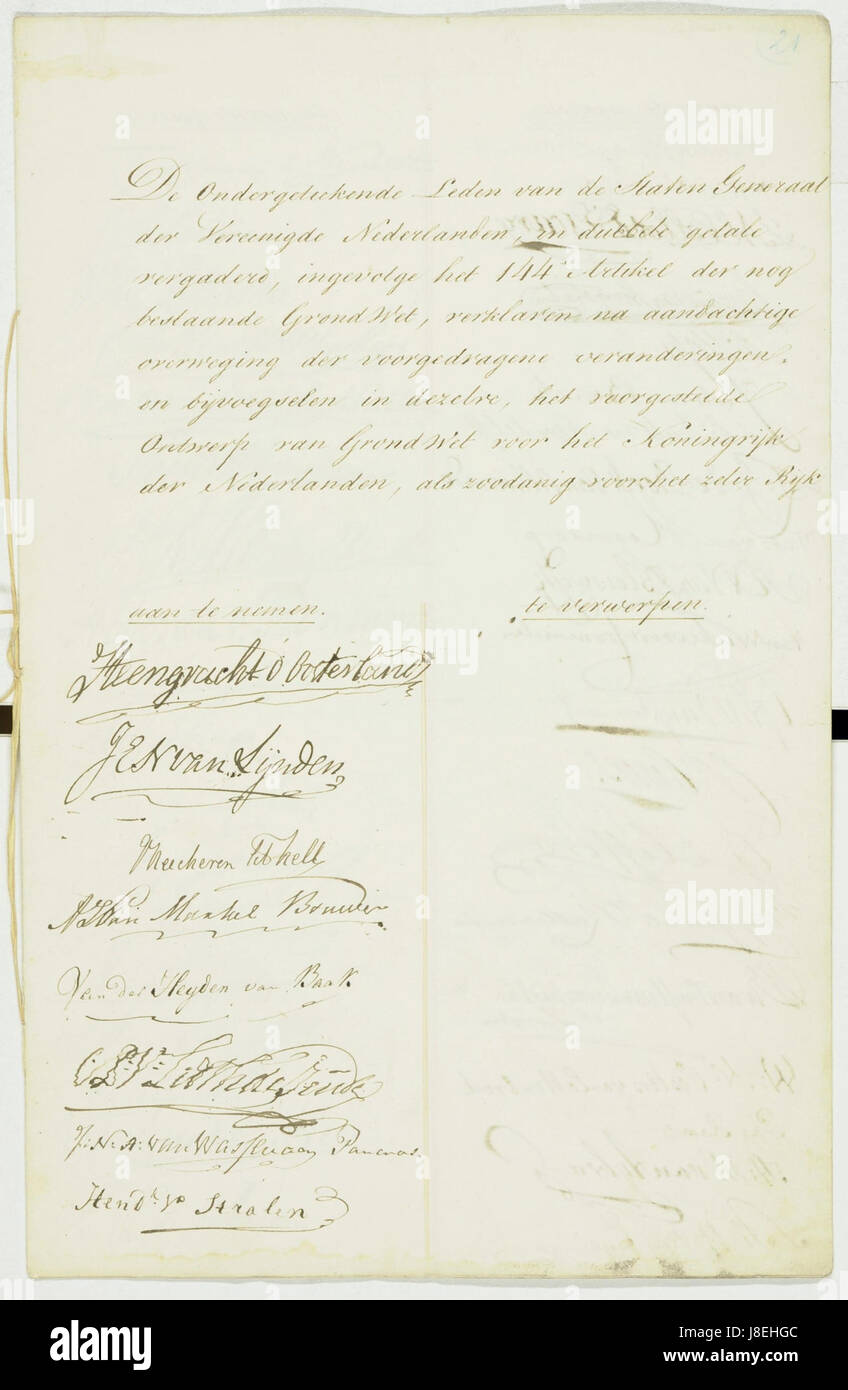 21
De Ondergeteekende Leden van de Staten Generaal
der Vereenigde Nederlanden, in dubbele getale
vergaderd, ingevolge het 144e Artikel der nog
bestaande GrondWet, verklaren na aandachtige
overweging der voorgedragene veranderingen,
en bijvoegselen in dezelve, het voorgestelde
Ontwerp van GrondWet voor het Koningrijk
der Nederlanden, als zoodanig voor het zelve Ryk
aan te nemen. te verwerpen.
Steengracht v Oosterland
J E N van Lynden
van Markel Bouwer
Van der Heyden van Baak
J: N: A: van Wassenaar
Hend k van Stralen
alamy
Image ID: J8EHGC
www.alamy.com